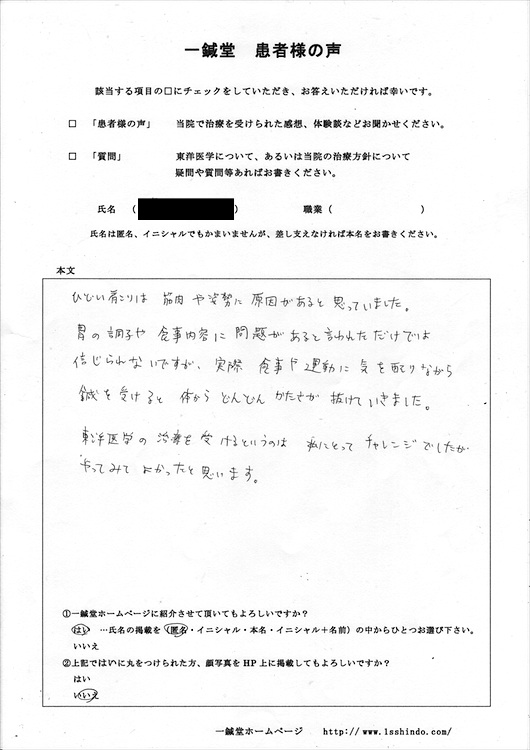 一鍼堂 患者様の声
該当する項目の□にチェックをしていただき、お答えいただければ幸いです。
□ 「患者様の声」 当院で治療を受けられた感想、体験談などお聞かせください。
□ 「質問」 東洋医学について、あるいは当院の治療方針について
疑問や質問等あればお書きください。
氏名 ( ) 職業 ( )
氏名は匿名、イニシャルでもかまいませんが、差し支えなければ本名をお書きください。
本文
ひどい肩こりは 筋肉や姿勢に原因があると思っていました。
胃の調子や食事内容に問題があると言われただけでは
信じられないですが、実際 食事や運動に気を配りながら
鍼を受けると 体から どんどん かたさが 抜けていきました。
東洋医学の治療を受けるというのは 私にとって チャレンジでしたが
やってみて よかったと思います。
①一鍼堂ホームページに紹介させて頂いてもよろしいですか?
はい …氏名の掲載を(匿名・イニシャル・本名・イニシャル+名前)の中からひとつお選び下さい。
いいえ
②上記ではいに丸をつけられた方、顔写真をHP上に掲載してもよろしいですか?
はい
いいえ
一鍼堂ホームページ http://www.1sshindo.com/